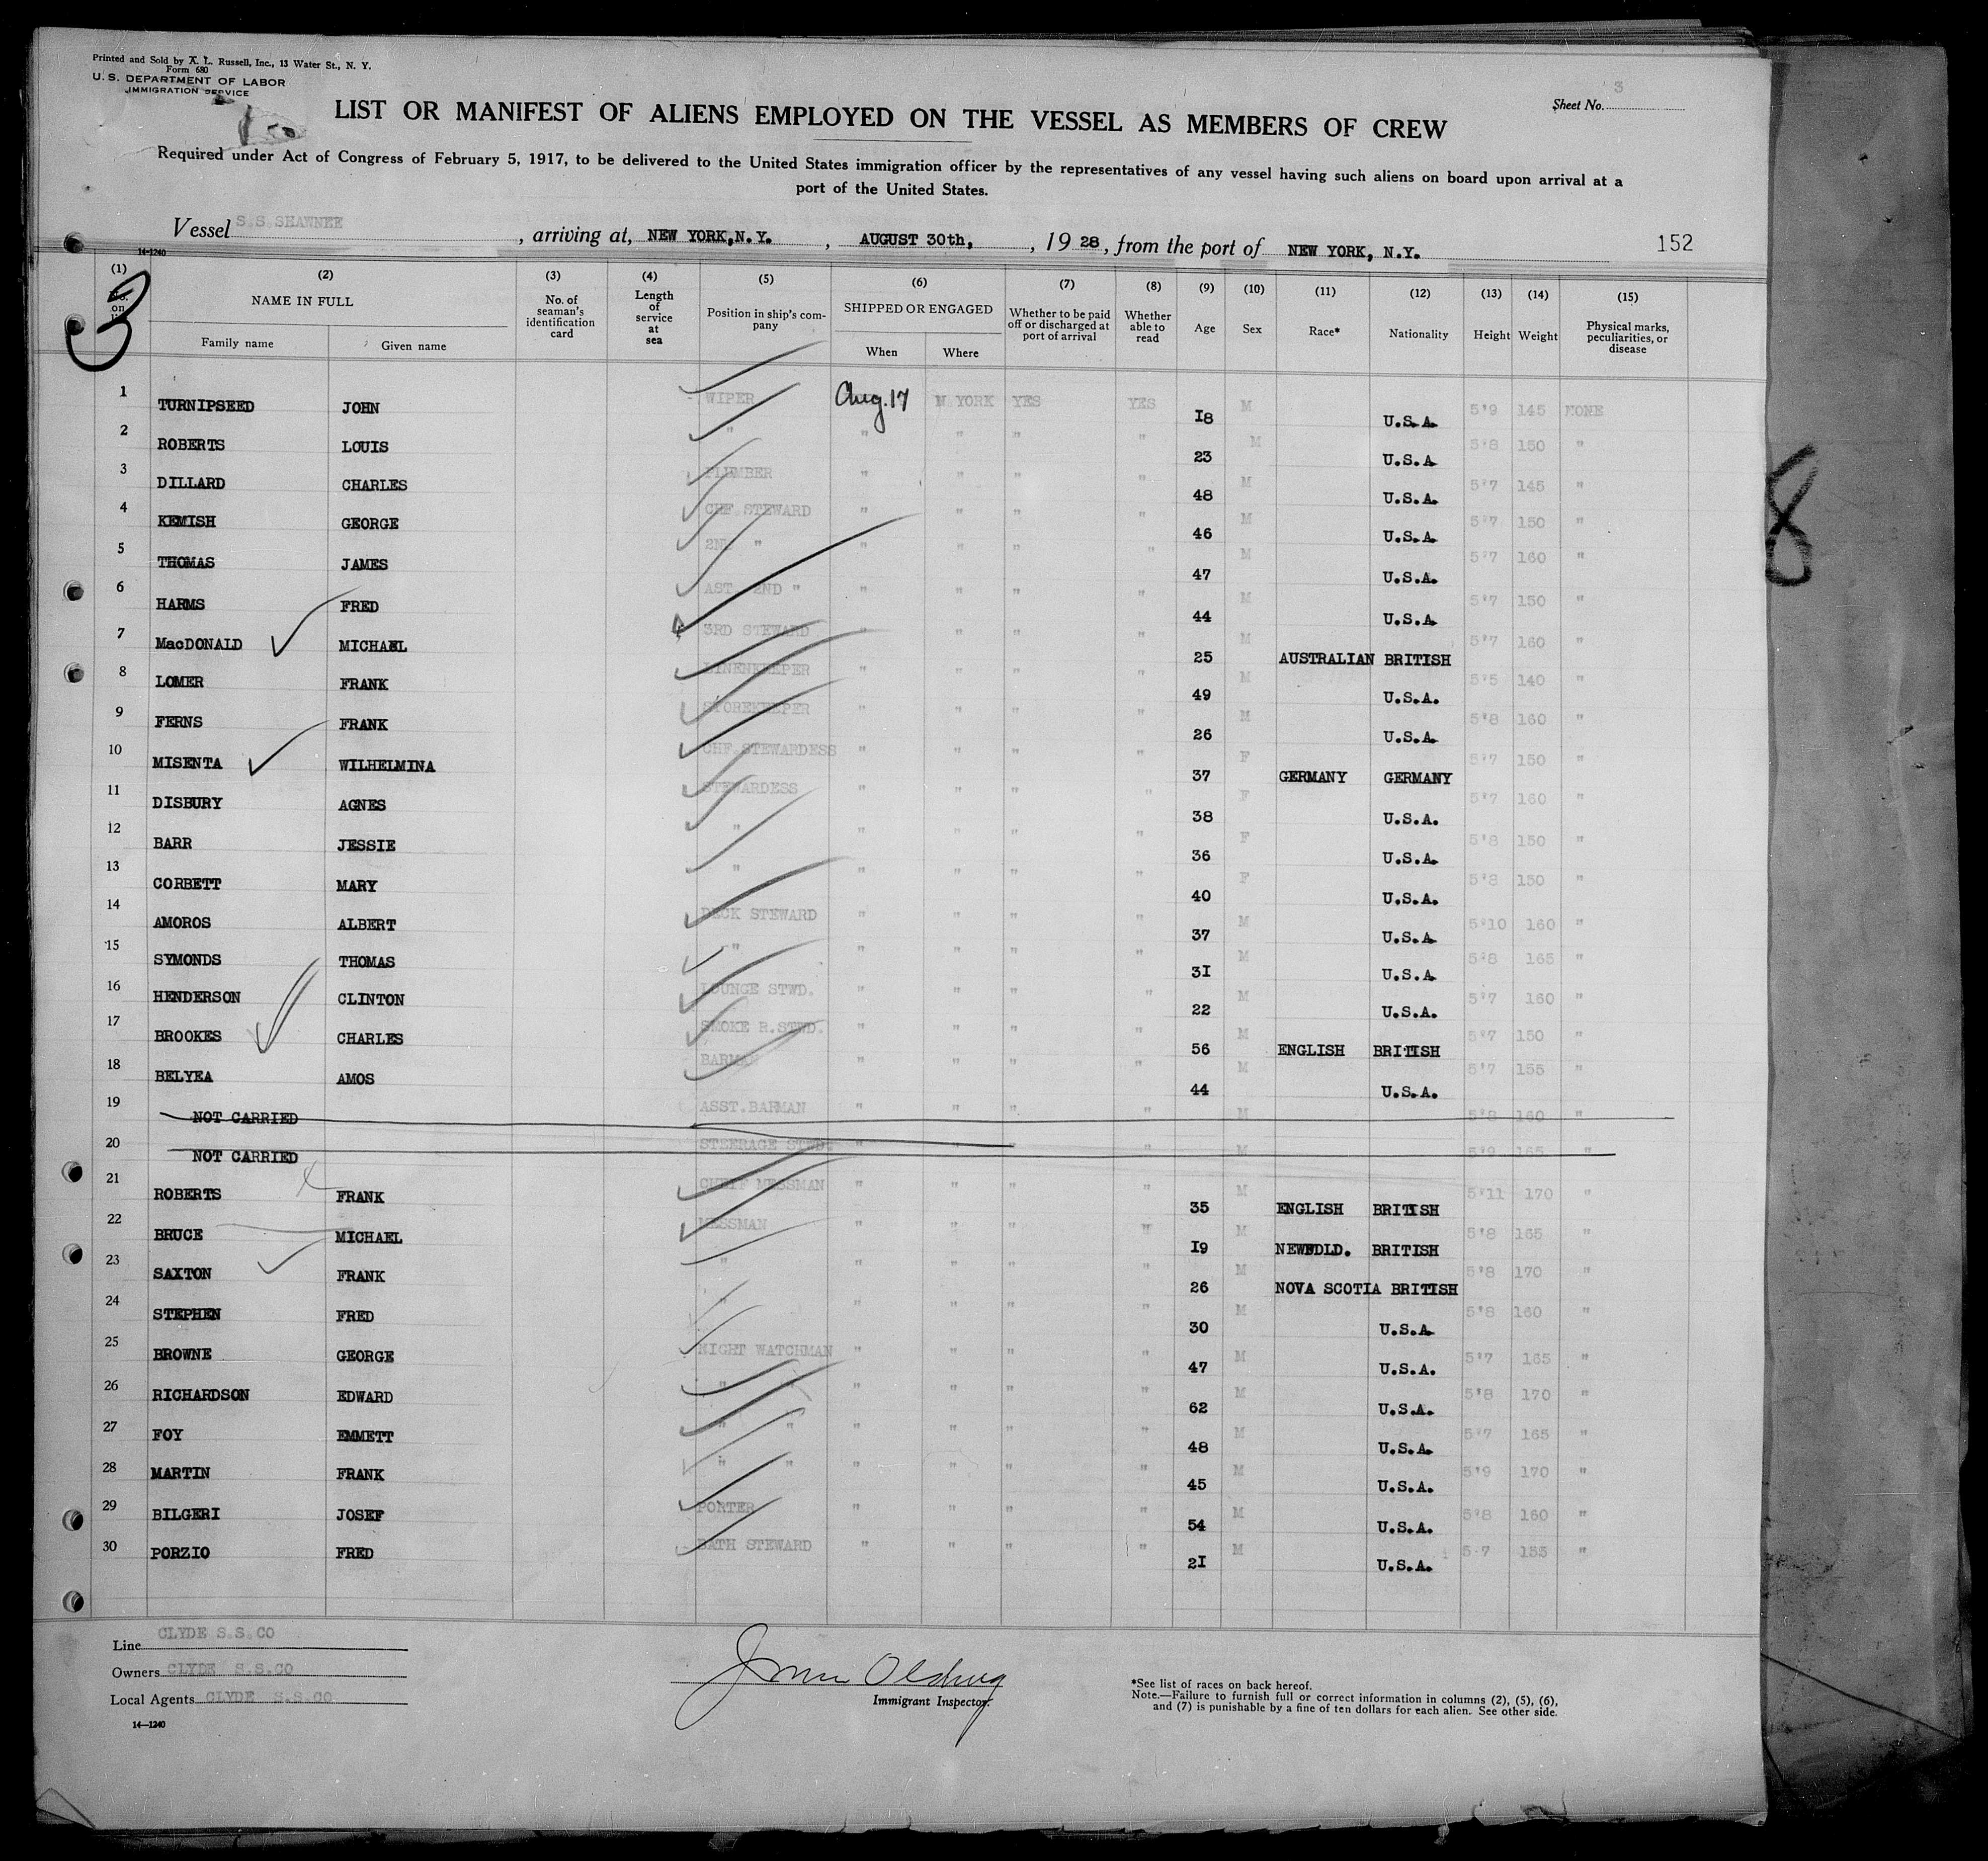 Printed and Sold by A. L. Russell, Inc., 13 Water St., N. Y.
Form 680
U. S. DEPARTMENT OF LABOR
IMMIGRATION SERVICE
Sheet No. 3
LIST OR MANIFEST OF ALIENS EMPLOYED ON THE VESSEL AS MEMBERS OF CREW
Required under Act of Congress of February 5, 1917, to be delivered to the United States immigration officer by the representatives of any vessel having such aliens on board upon arrival at a
port of the United States.
Vessel S.S. SHAWNEE, arriving at, NEW YORK, N.Y., AUGUST 30th, 1928, from the port of NEW YORK, N.Y. 152
14-1240
3
8
(1) (2) (3) (4) (5) (6) (7) (8) (9) (10) (11) (12) (13) (14) (15)
No. on NAME IN FULL No. of seaman's identification card Length of service at sea Position in ship's company SHIPPED OR ENGAGED Whether to be paid off or discharged at port of arrival Whether able to read Age Sex Race* Nationality Height Weight Physical marks, peculiarities, or disease
Family name Given name When Where
1 TURNIPSEED JOHN WIPER Aug. 17 N YORK YES YES 18 M U.S.A. 5'9 145 NONE
2 ROBERTS LOUIS " " " " " 23 M U.S.A 5'8 150 "
3 DILLARD CHARLES PLUMBER " " " " 48 M U.S.A. 5'7 145 "
4 KEMISH GEORGE CHF. STEWARD " " " " 46 M U.S.A. 5'7 150 "
5 THOMAS JAMES 2ND " " " " " 47 M U.S.A. 5'7 160 "
6 HARMS FRED AST. 2ND " " " " " 44 M U.S.A. 5'7 150 "
7 MacDONALD MICHAEL 3RD STEWARD " " " " 25 M AUSTRALIAN BRITISH 5'7 160 "
8 LOMER FRANK LINENKEEPER " " " " 49 M U.S.A. 5'5 140 "
9 FERNS FRANK STOREKEEPER " " " " 26 M U.S.A. 5'8 160 "
10 MISENTA WILHELMINA CHF. STEWARDESS " " " " 37 F GERMANY GERMANY 5'7 150 "
11 DISBURY AGNES STEWARDESS " " " " 38 F U.S.A. 5'7 160 "
12 BARR JESSIE " " " " " 36 F U.S.A. 5'8 150 "
13 CORBETT MARY " " " " " 40 F U.S.A. 5'8 150 "
14 AMOROS ALBERT DECK STEWARD " " " " 37 M U.S.A. 5'10 160 "
15 SYMONDS THOMAS " " " " " 31 M U.S.A. 5'8 165 "
16 HENDERSON CLINTON LOUNGE STWD. " " " " 22 M U.S.A. 5'7 160 "
17 BROOKES CHARLES SMOKE R.STWD. " " " " 56 M ENGLISH BRITISH 5'7 150 "
18 BELYEA AMOS BARMAN " " " " 44 M U.S.A. 5'7 155 "
19 NOT CARRIED ASST.BARMAN " " " " M 5'8 160 "
20 NOT CARRIED STEERAGE STWD. " " " M 5'9 165 "
21 ROBERTS FRANK CHIEF MESSMAN " " " " 35 M ENGLISH BRITISH 5'11 170 "
22 BRUCE MICHAEL MESSMAN " " " " 19 M NEWFDLD. BRITISH 5'8 165 "
23 SAXTON FRANK " " " " " 26 M NOVA SCOTIA BRITISH 5'8 170 "
24 STEPHEN FRED " " " " " 30 M U.S.A. 5'8 160 "
25 BROWNE GEORGE NIGHT WATCHMAN " " " " 47 M U.S.A. 5'7 165 "
26 RICHARDSON EDWARD " " " " " " 62 M U.S.A. 5'8 170 "
27 FOY EMMETT " " " " " " 48 M U.S.A. 5'7 165 "
28 MARTIN FRANK " " " " " " 45 M U.S.A. 5'9 170 "
29 BILGERI JOSEF PORTER " " " " 54 M U.S.A. 5'8 160 "
30 PORZIO FRED BATH STEWARD " " " " 21 M U.S.A. 5'7 155 "
Line CLYDE S.S.CO
Owners CLYDE S.S.CO
Local Agents CLYDE S.S.CO
14—1240
Immigrant Inspector.
*See list of races on back hereof.
Note.—Failure to furnish full or correct information in columns (2), (5), (6),
and (7) is punishable by a fine of ten dollars for each alien. See other side.